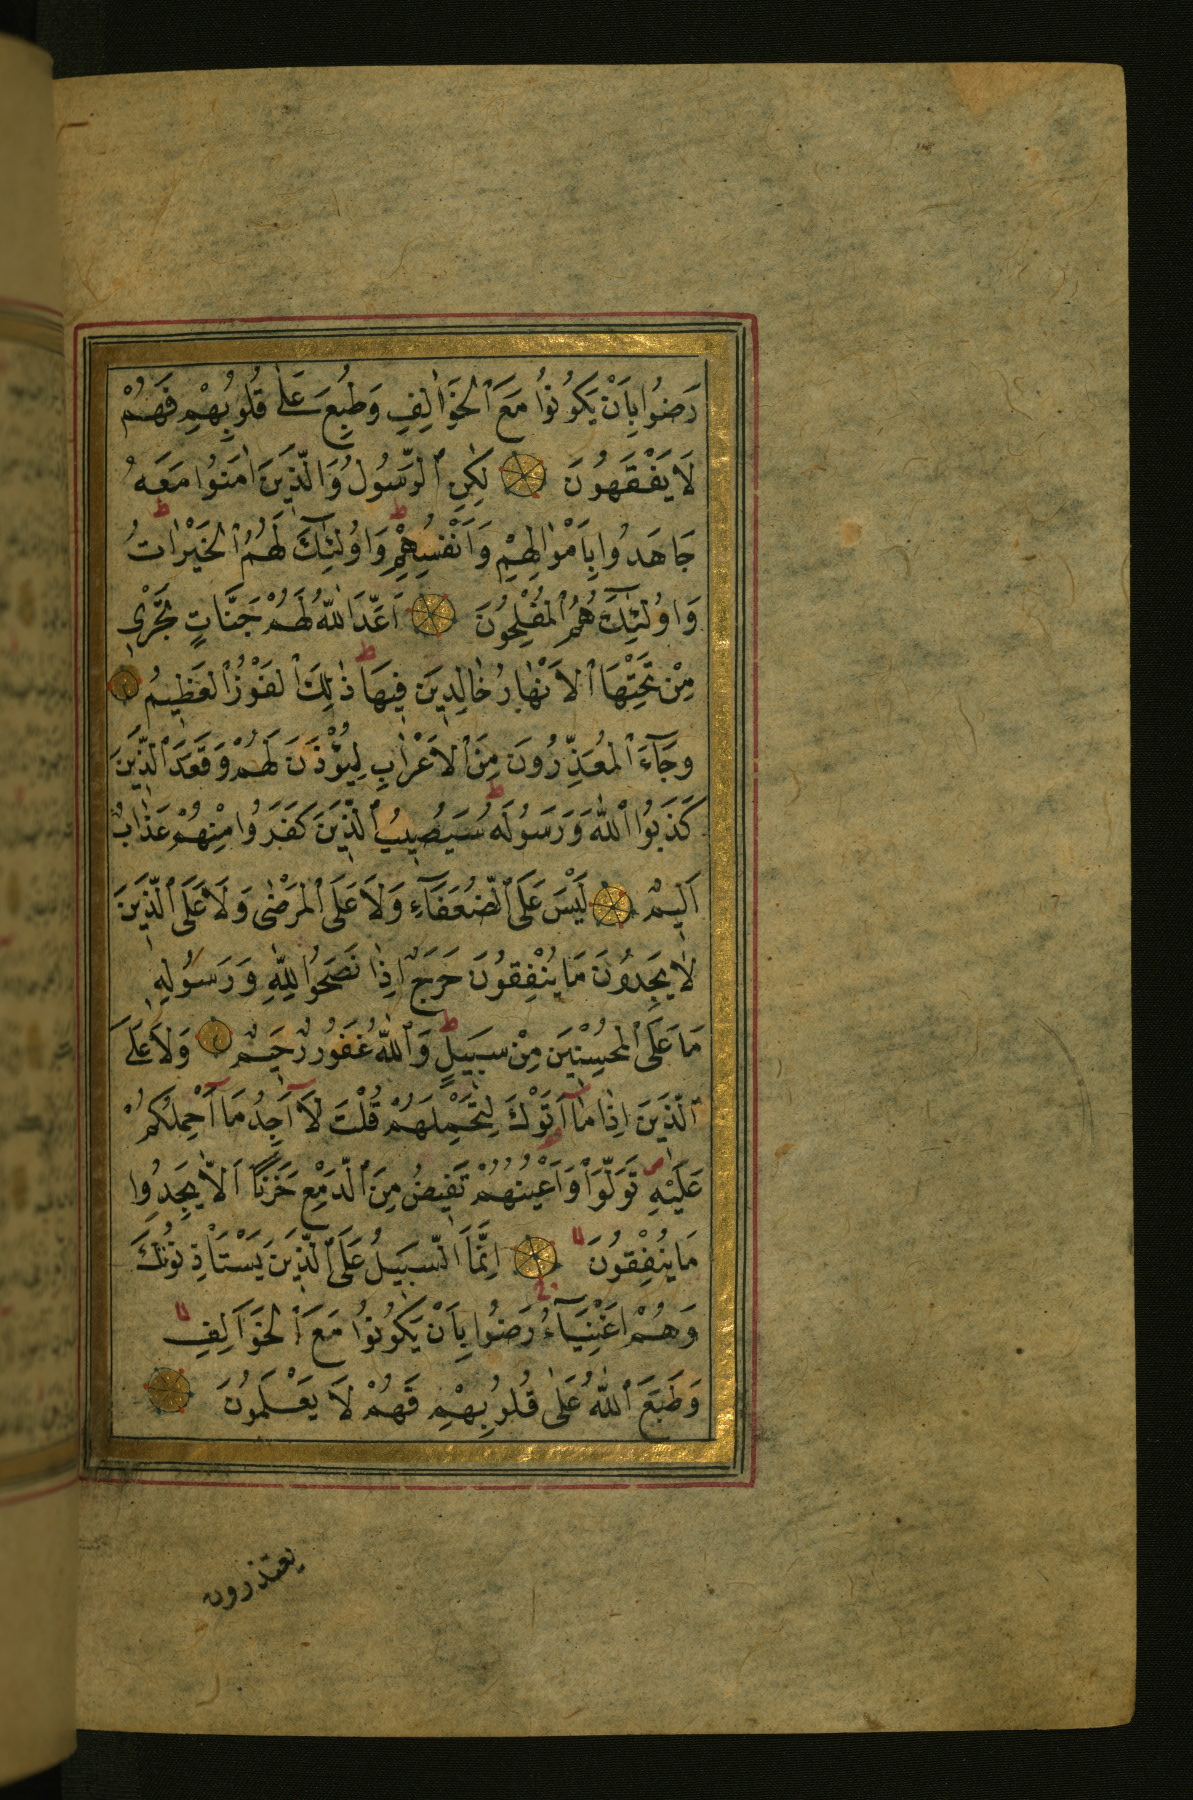 رَضُوا بِاَنْ يَكُونُوا مَعَ ٱلخَوَالِفِ وَطُبِعَ عَلٰى قُلُوبِهِمْ فَهُمْ
لَا يَفْقَهُونَ لٰكِنِ ٱلرَّسُولُ وَالَّذِينَ اٰمَنُوا مَعَهُ
جَاهَدُوا بِاَمْوَالِهِمْ وَاَنْفُسِهِمْ وَاُولٰئِكَ لَهُمُ ٱلخَيْرَاتُ
وَاُولٰئِكَ هُمُ ٱلمُفْلِحُونَ اَعَدَّ ٱللّٰهُ لَهُمْ جَنَّاتٍ تَجْرٖى
مِنْ تَحْتِهَا ٱلاَنْهَارُ خَالِدِينَ فِيهَا ذٰلِكَ ٱلفَوْزُ ٱلعَظِيمُ
وَجَآءَ ٱلمُعَذِّرُونَ مِنَ ٱلاَعْرَابِ لِيُؤْذَنَ لَهُمْ وَقَعَدَ ٱلَّذِينَ
كَذَبُوا ٱللّٰهَ وَرَسُولَهُ سَيُصِيبُ ٱلَّذِينَ كَفَرُوا مِنْهُمْ عَذَابٌ
اَلِيمٌ لَيْسَ عَلَى ٱلضُّعَفَآءِ وَلَا عَلَى ٱلمَرْضٰى وَلَا عَلَى ٱلَّذِينَ
لَا يَجِدُونَ مَا يُنْفِقُونَ حَرَجٌ اِذَا نَصَحُوا لِلّٰهِ وَرَسُولِهِ
مَا عَلَى ٱلمُحْسِنِينَ مِنْ سَبِيلٍ وَٱللّٰهُ غَفُورٌ رَحِيمٌ وَلَا عَلَى
ٱلَّذِينَ اِذَا مَآ اَتَوْكَ لِتَحْمِلَهُمْ قُلْتَ لَآ اَجِدُ مَآ اَحْمِلُكُمْ
عَلَيْهِ تَوَلَّوْا وَاَعْيُنُهُمْ تَفِيضُ مِنَ ٱلدَّمْعِ حَزَنًا اَلَّا يَجِدُوا
مَا يُنْفِقُونَ اِنَّمَا ٱلسَّبِيلُ عَلَى ٱلَّذِينَ يَسْتَاْذِنُونَكَ
وَهُمْ اَغْنِيَآءُ رَضُوا بِاَنْ يَكُونُوا مَعَ ٱلخَوَالِفِ
وَطَبَعَ ٱللّٰهُ عَلٰى قُلُوبِهِمْ فَهُمْ لَا يَعْلَمُونَ
يعتذرون